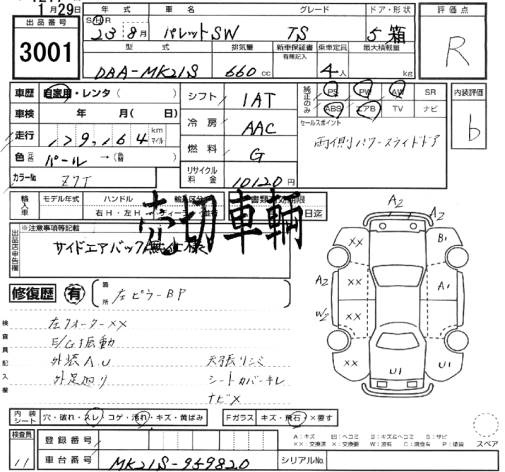 1月29日
出品番号
3001
年式 車名 グレード ドア・形状
S/H 23年 8月 パレットSW TS 5 箱
型式 排気量 新車保証書 乗車定員 最大積載量
有無記入
DAA-MK21S 660cc 4人 kg
評価点
R
内装評価
b
車歴 自家用・レンタ( )
車検 年 月( 日)
走行 179,164 km マイル
色 パール →(
カラーNo. Z7T
シフト IAT
冷房 AAC
燃料 G
リサイクル料金 10120円
純正のみ
PS PW AW SR
ABS エアB TV ナビ
セールスポイント
両側パワースライドドア
輸入車
モデル年式 ハンドル 輸入区分
右H・左H ディーラー
日迄
売切車輌
※注意事項等記載
サイドエアバック無仕様
修復歴 有
箇所
左ピラーBP
検査員記入欄
左クォーターXX
E/G振動
外装A.U 天張リシミ
外足廻り シートカバーキレ
ナビX
A2
A2
XX B1
A2 XX A1
W2 XX
U1 U1
内装シート 穴・破れ・スレ・コゲ・汚れ・キズ・黄ばみ
Fガラス キズ・飛石・X要す
A:キズ U:凹ヘコミ B:キズ&ヘコミ S:サビ
スペア
検査員
11
登録番号
車台番号 MK21S-959820
シリアルNo.